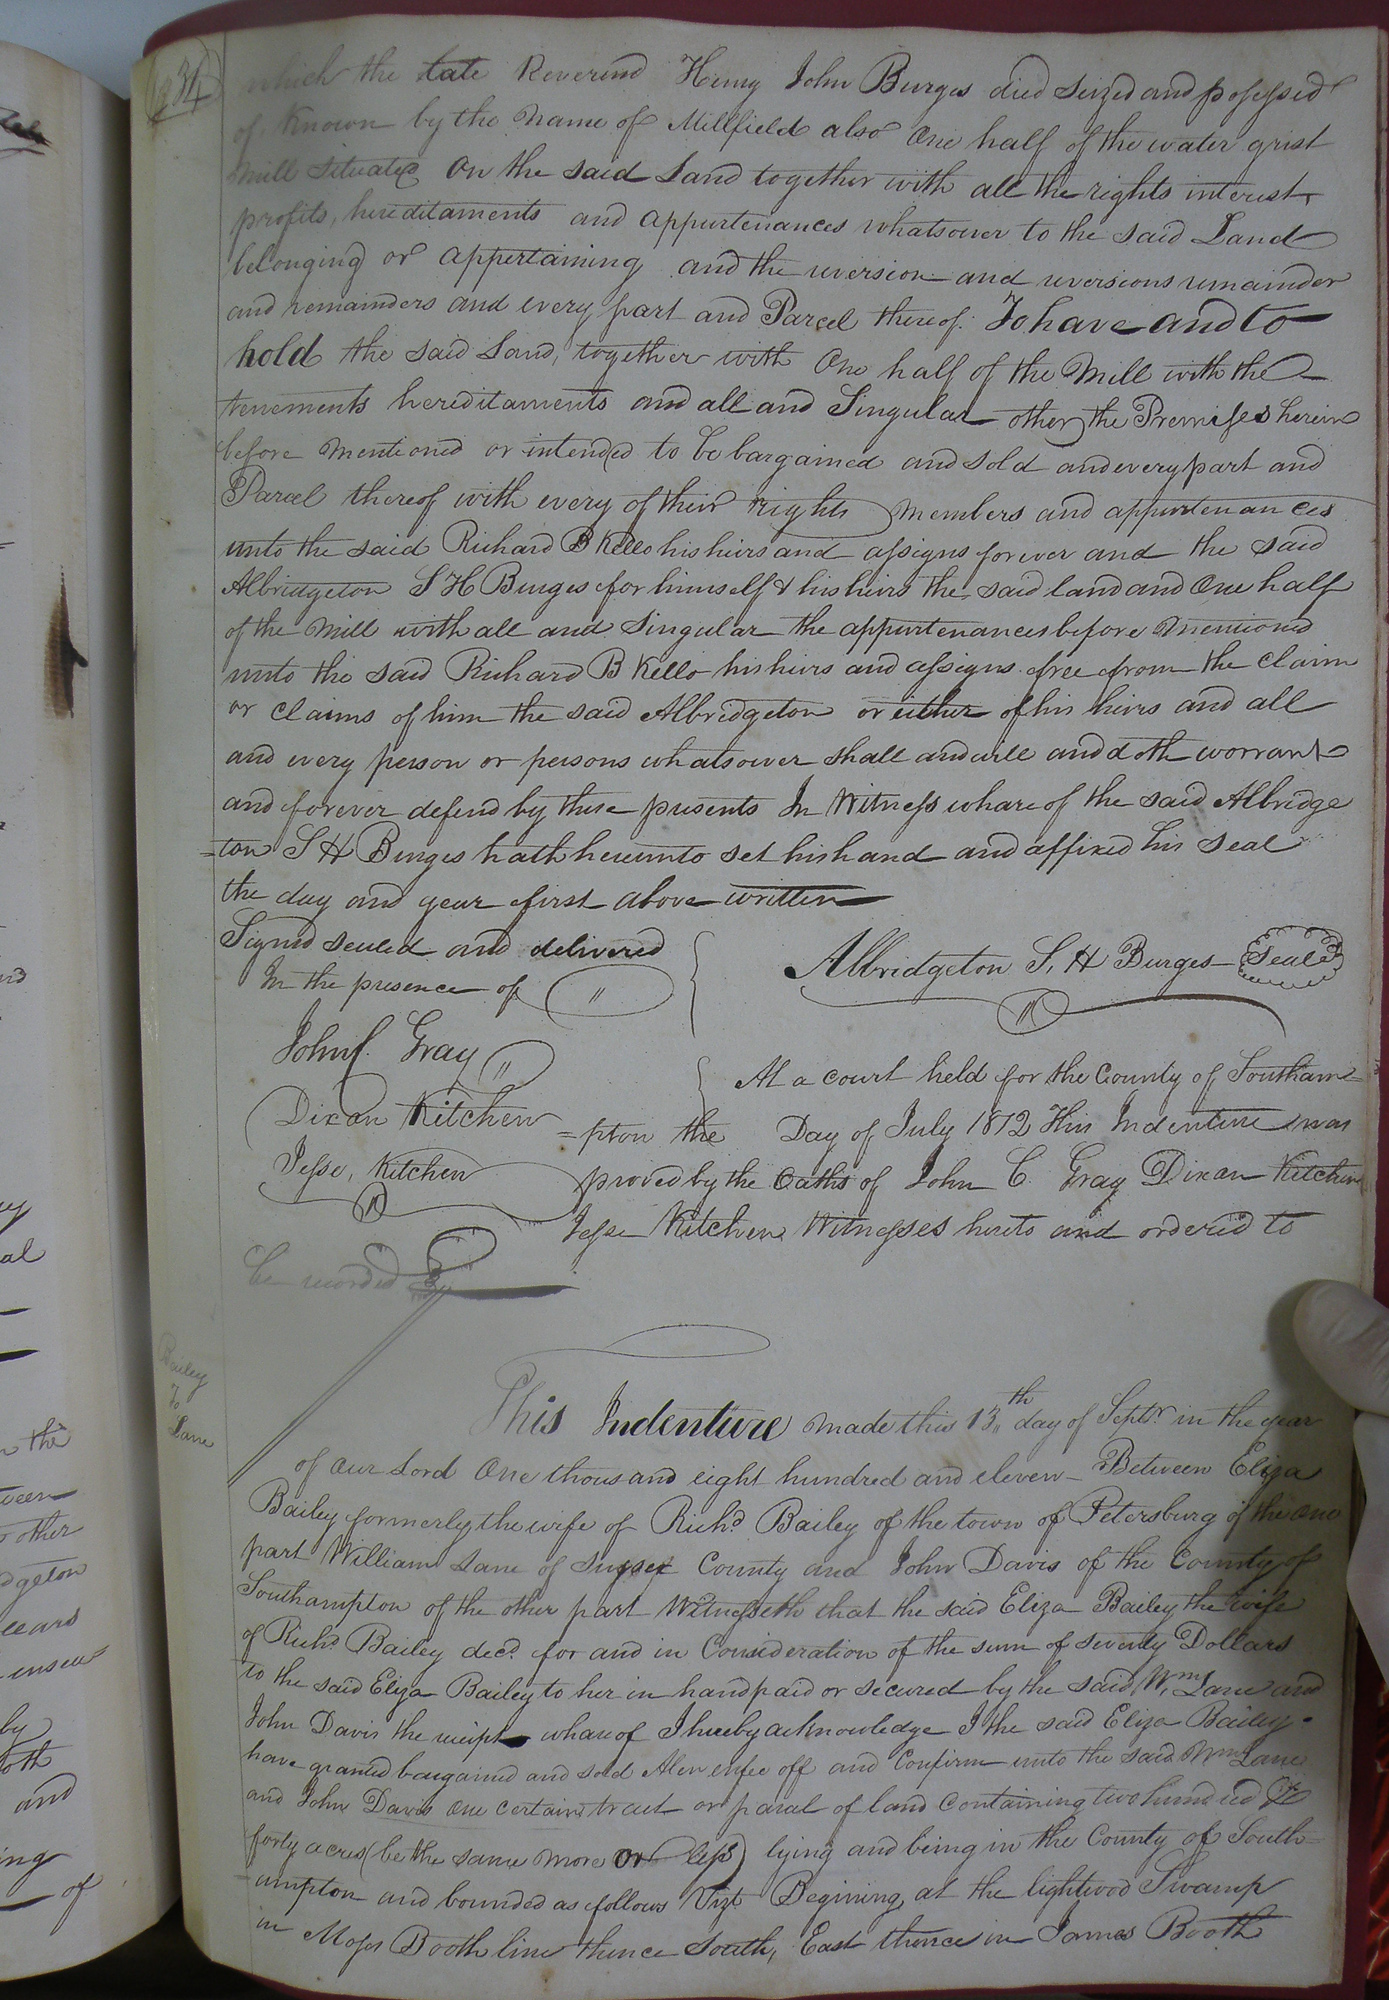 34
which the late Reverend Henry John Burges died seized and possessed
of Known by the Name of Millfield also One half of the water grist
Mill Situated On the said Land together with all the rights interest
profits, hereditaments and appurtenances whatsoever to the said Land
belonging or appertaining and the reversion and reversions remainder
and remainders and every part and Parcel thereof. To have and to
hold the said Land, together with One half of the Mill with the
tenements hereditaments and all and Singular other the Premises herein
before mentioned or intended to be bargained and sold and every part and
Parcel thereof with every of their rights Members and appurtenances
unto the said Richard B Kello his heirs and assigns forever and the said
Albridgeton S H Burges for himself & his heirs the said land and One half
of the Mill with all and Singular the appurtenances before mentioned
unto the said Richard B Kello his heirs and assigns free from the claim
or claims of him the said Albridgeton or either of his heirs and all
and every person or persons whatsoever shall and will and doth worrant
and forever defend by these presents In Witness whareof the said Albridge
=ton S H Burges hath hereunto set his hand and affixed his seal
the day and year first above written
Signed sealed and delivered
In the presence of
Albridgeton S. H Burges Seal
John C. Gray
Dixan Kitchen
Jesse, Kitchen
At a court held for the County of Southam=
=pton the Day of July 1812 This Indenture was
proved by the Oaths of John C. Gray Dixan Kitchen
Jesse Kitchen Witnesses hereto and ordered to
be recorded
Bailey
To
Lane
This Indenture made this 13th day of Septr. in the year
of our Lord One thousand eight hundred and eleven Between Eliza
Bailey formerly the wife of Richd. Bailey of the town of Petersburg of the one
part William Lane of Sussex County and John Davis of the County of
Southampton of the other part Witnesseth that the said Eliza Bailey the wife
of Richd. Bailey decd. for and in Consideration of the sum of seventy Dollars
to the said Eliza Bailey to her in hand paid or secured by the said Wm. Lane and
John Davis the reciept whareof I hereby acknowledge I the said Eliza Bailey
have granted bargained and sold Alien enfee off and Confirm unto the said Wm Lane
and John Davis One certain tract or parcal of land Containing two hundred &
forty acres (be the same more or less) lying and being in the County of South=
=ampton and bounded as follows Vizt Begining at the lightwood Swamp
in Moses Booth line thence South, East thence in James Booth